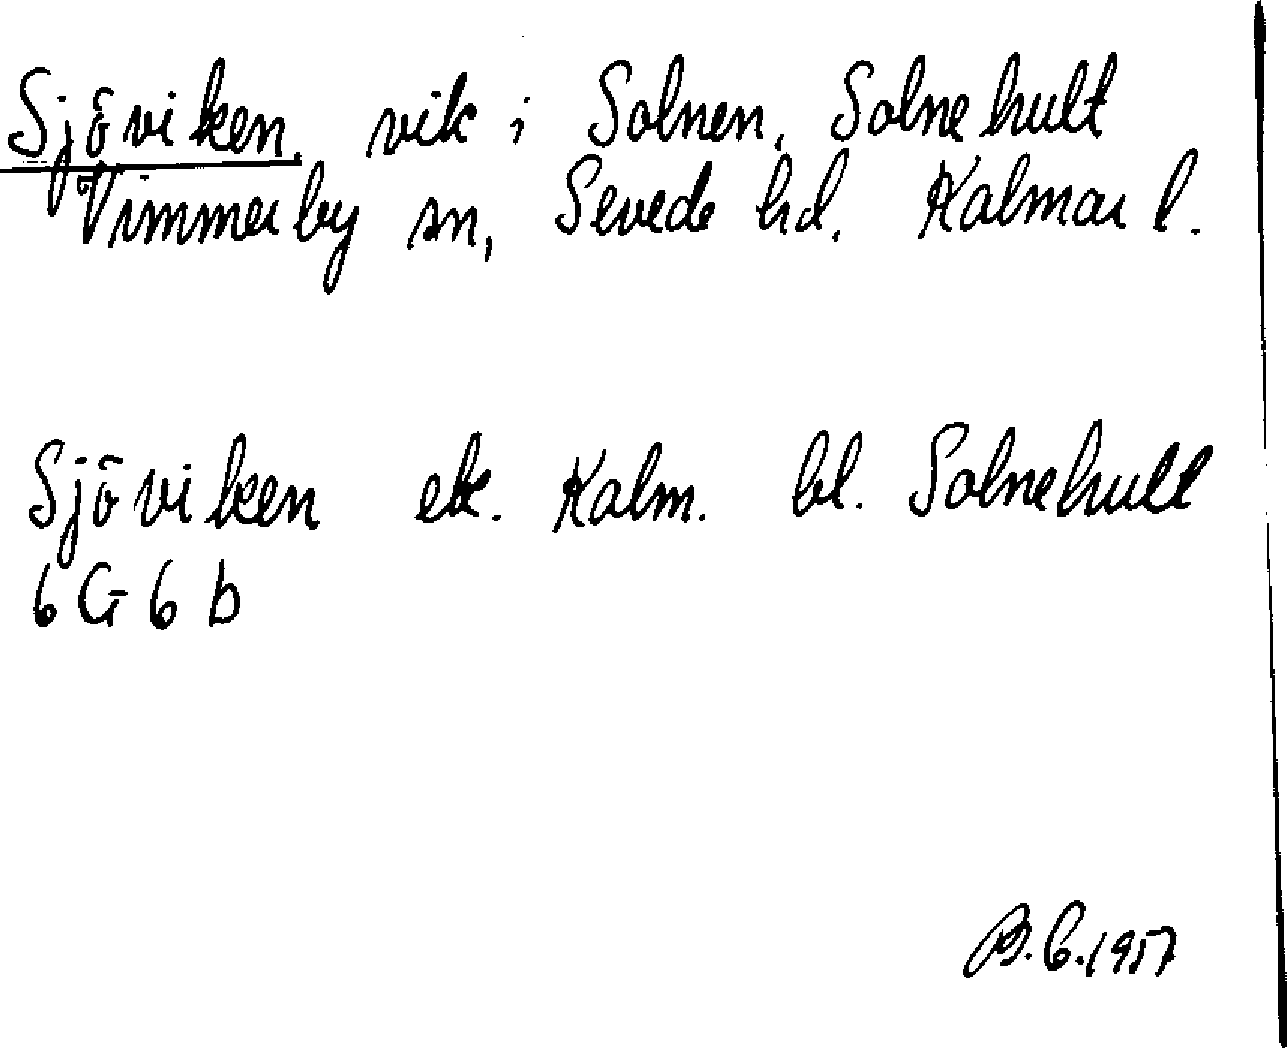 Sjöviken, vik i Solnen, Solnehult
Vimmerby sn, Sevede hd. Kalmar l.
Sjöviken ek. Kalm. bl. Solnehult
6 G 6 b
B.C. 1957